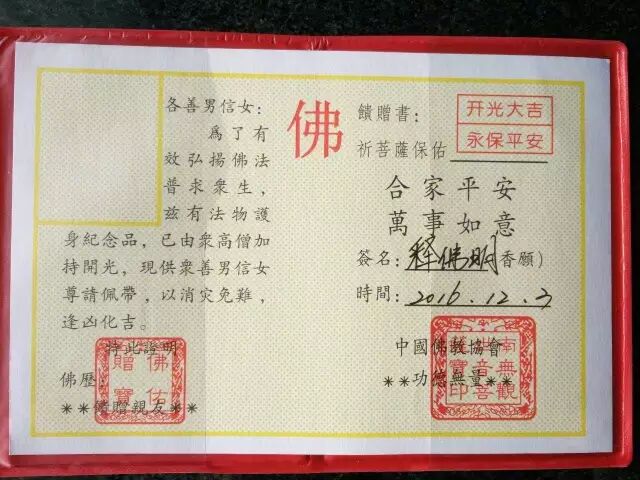 各善男信女:
爲了有
效弘揚佛法
普求衆生，
兹有法物護
身紀念品，已由衆高僧加
持開光，現供衆善男信女
尊請佩帶，以消灾免難，
逢凶化吉。
特此證明
佛歷:
**饋贈親友**
佛佑
贈寶
佛
饋贈書:
开光大吉
永保平安
祈菩薩保佑
合家平安
萬事如意
簽名:釋佛明(香願)
時間:2016.12.3
中國佛教協會
**功德無量**
南無觀
世音菩
薩寶印